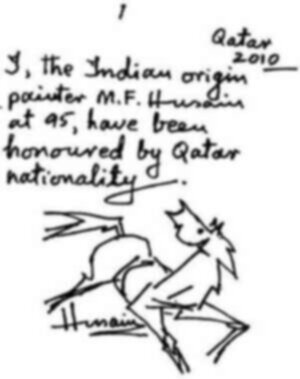 1
Qatar
2010
I, the Indian origin
painter M.F. Husain
at 95, have been
honoured by Qatar
nationality.
Husain